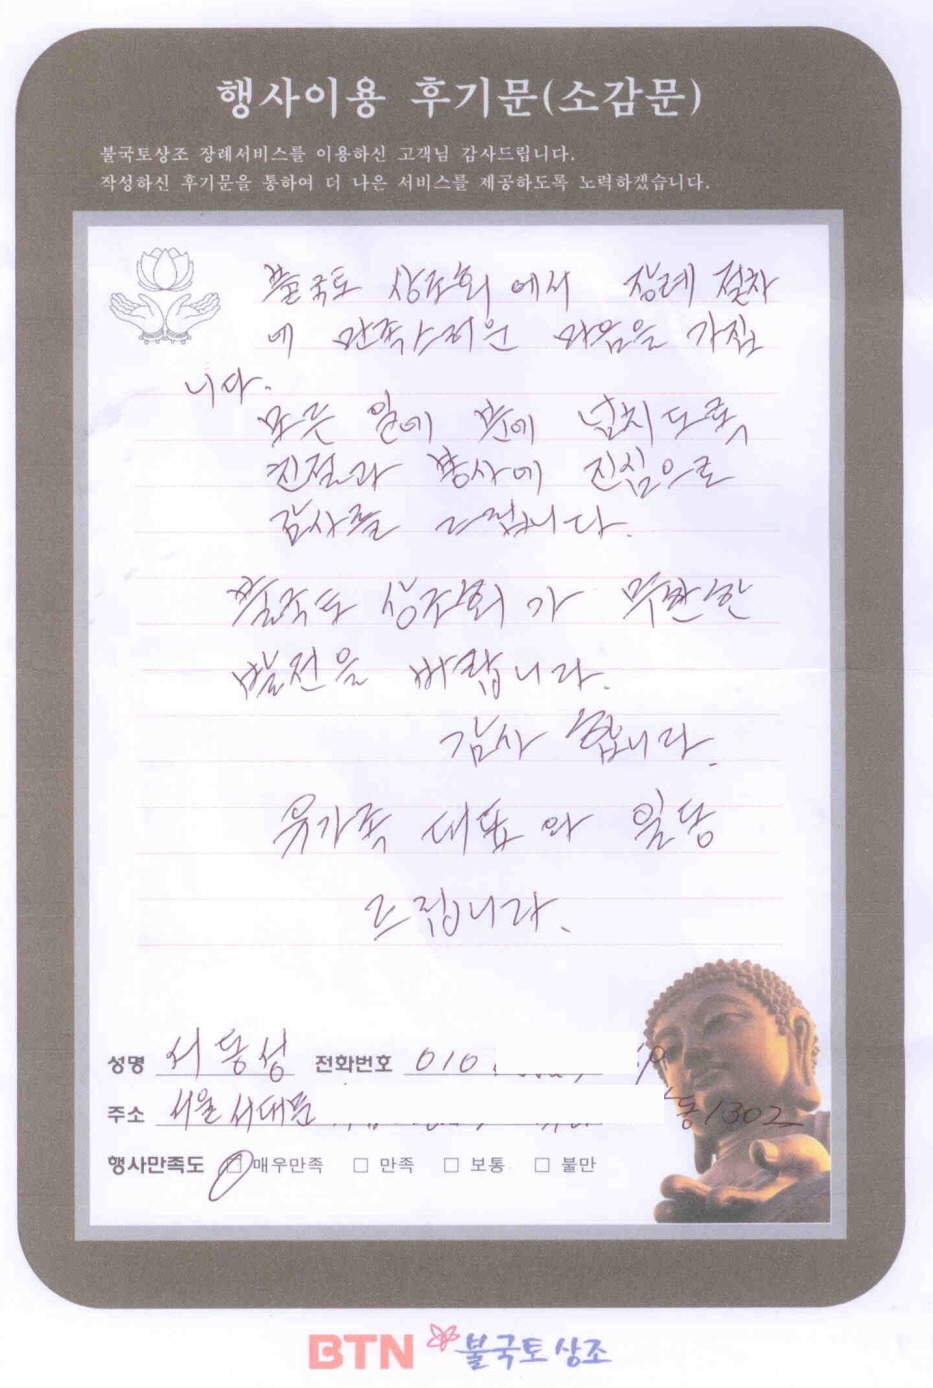 행사이용 후기문(소감문)
불국토상조 장례서비스를 이용하신 고객님 감사드립니다.
작성하신 후기문을 통하여 더 나은 서비스를 제공하도록 노력하겠습니다.
불국토 상조회 에서 장례 절차
에 만족스러운 마음을 가집
니다.
모든 일에 분에 넘치도록,
친절과 봉사에 진심으로
감사를 드립니다.
불국토 상조회 가 무한한
발전을 바랍니다.
감사 합니다.
유가족 대표 와 일동
드립니다.
성명 서동성 전화번호 010.
주소 서울 서대문 동 1302
행사만족도 매우만족 □ 만족 □ 보통 □ 불만
BTN 불국토 상조